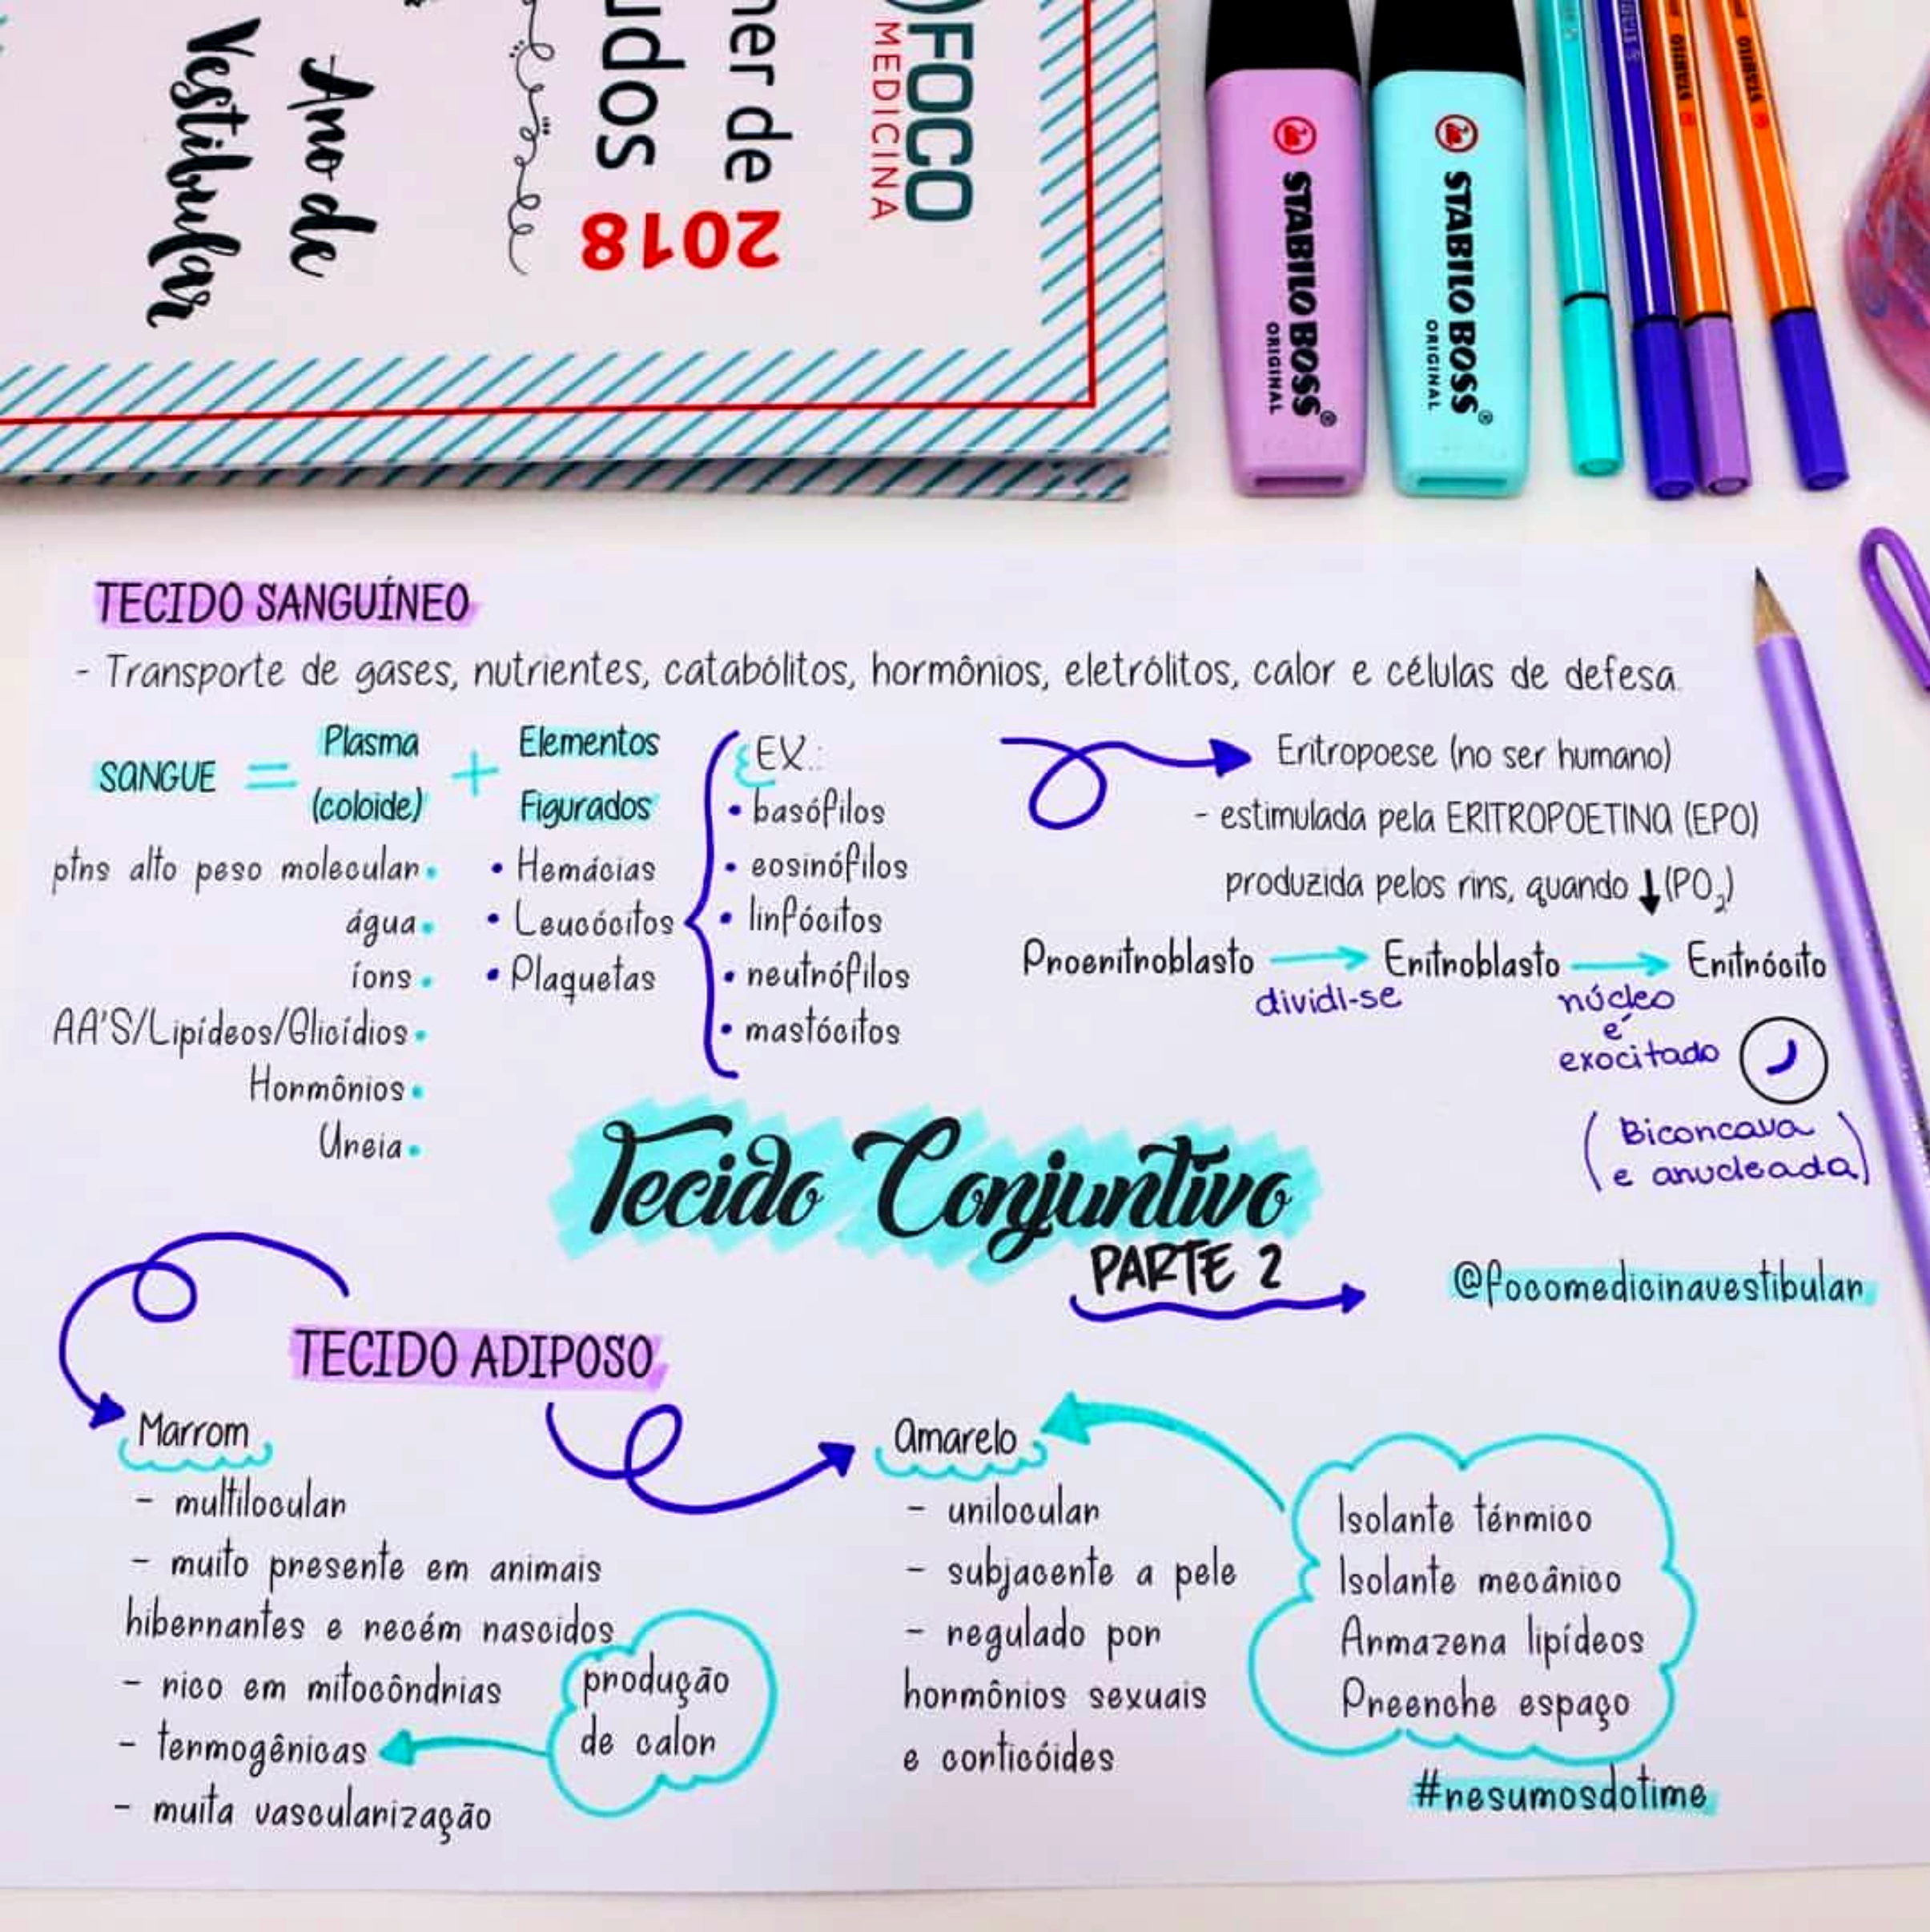 FOCO
MEDICINA
ner de
2018
udos
Ano de
Vestibular
STABILO BOSS®
ORIGINAL
STABILO BOSS®
ORIGINAL
STABILO
STABILO
TECIDO SANGUÍNEO
- Transporte de gases, nutrientes, catabólitos, hormônios, eletrólitos, calor e células de defesa.
SANGUE = Plasma (coloide) + Elementos Figurados
ptns alto peso molecular •
água •
íons •
AA'S/Lipídeos/Glicídios •
Hormônios •
Ureia •
• Hemácias
• Leucócitos
• Plaquetas
EX.:
• basófilos
• eosinófilos
• linfócitos
• neutrófilos
• mastócitos
Eritropoese (no ser humano)
- estimulada pela ERITROPOETINA (EPO)
produzida pelos rins, quando ↓(PO₂)
Proeritroblasto → Eritroblasto → Eritrócito
dividi-se
núcleo
é
exocitado
(Biconcava
e anucleada)
Tecido Conjuntivo
PARTE 2
@focomedicinavestibular
TECIDO ADIPOSO
Marrom
- multilocular
- muito presente em animais
hibernantes e recém nascidos
- rico em mitocôndrias
- termogênicas
- muita vascularização
produção
de calor
Amarelo
- unilocular
- subjacente a pele
- regulado por
hormônios sexuais
e corticóides
Isolante térmico
Isolante mecânico
Armazena lipídeos
Preenche espaço
#resumosdotime